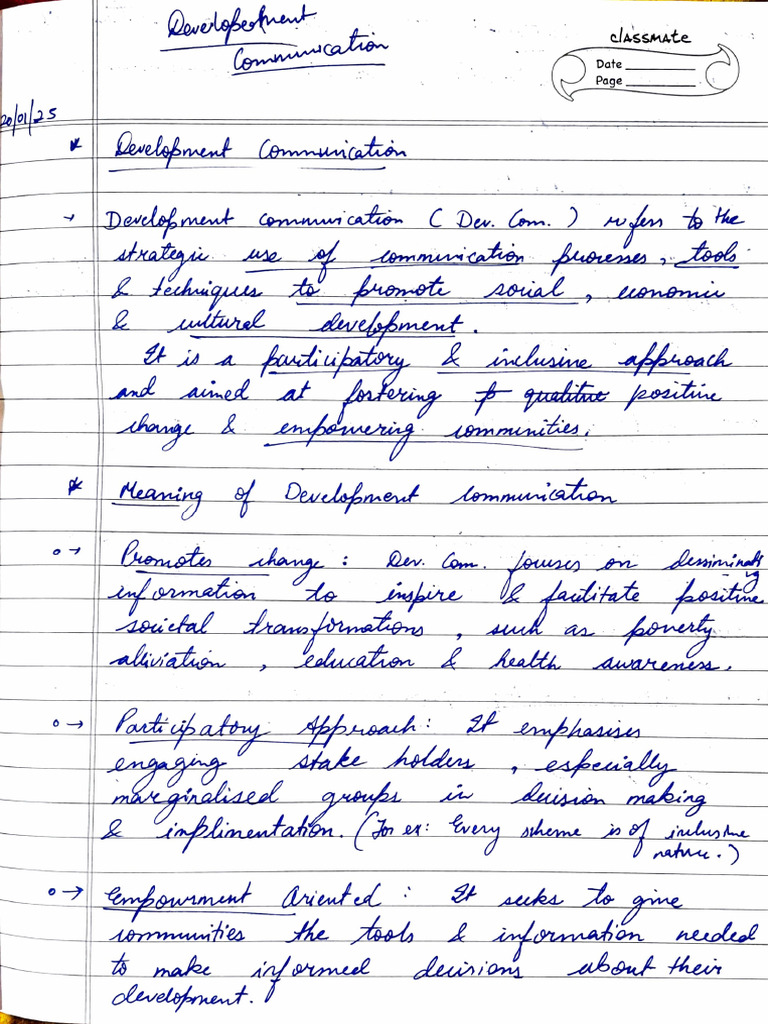 Development
Communication
classmate
Date
Page
20/01/25
* Development Communication
→ Development communication (Dev. Com.) refers to the
strategic use of communication processes, tools
& techniques to promote social, economic
& cultural development.
It is a participatory & inclusive approach
and aimed at fostering positive
change & empowering communities.
* Meaning of Development communication
o→ Promotes change : Dev. Com. focuses on dessiminating
information to inspire & facilitate positive
societal transformations, such as poverty
alliviation, education & health awareness.
o→ Participatory Approach : It emphasises
engaging stake holders, especially
marginalised groups in decision making
& implimentation. (For ex: Every scheme is of inclusive
nature.)
o→ Empowerment Oriented : It seeks to give
communities the tools & information needed
to make informed decisions about their
development.